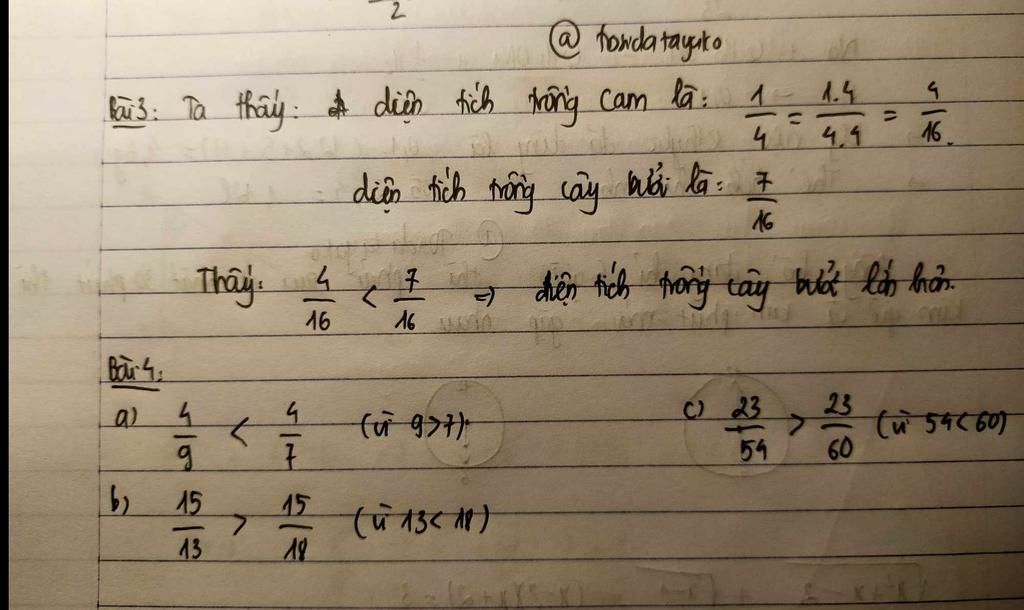 2
@ towdatayuko
Bài 3: Ta thấy: diện tích trồng cam là: 1/4 = 1.4/4.4 = 4/16.
diện tích trồng cây bưởi là: 7/16
Thấy: 4/16 < 7/16 => diện tích trồng cây bưởi lớn hơn.
Bài 4:
a) 4/9 < 4/7 (vì 9>7). c) 23/54 > 23/60 (vì 54<60)
b) 15/13 > 15/18 (vì 13< 18)